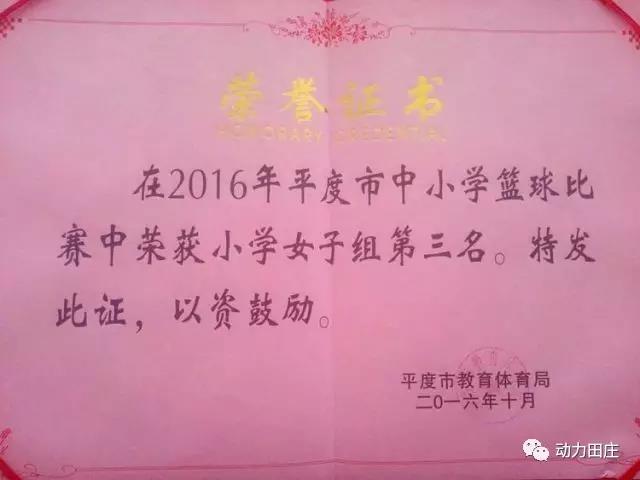 荣誉证书
HONORARY CREDENTIAL
在2016年平度市中小学篮球比
赛中荣获小学女子组第三名。特发
此证，以资鼓励。
平度市教育体育局
二〇一六年十月
动力田庄